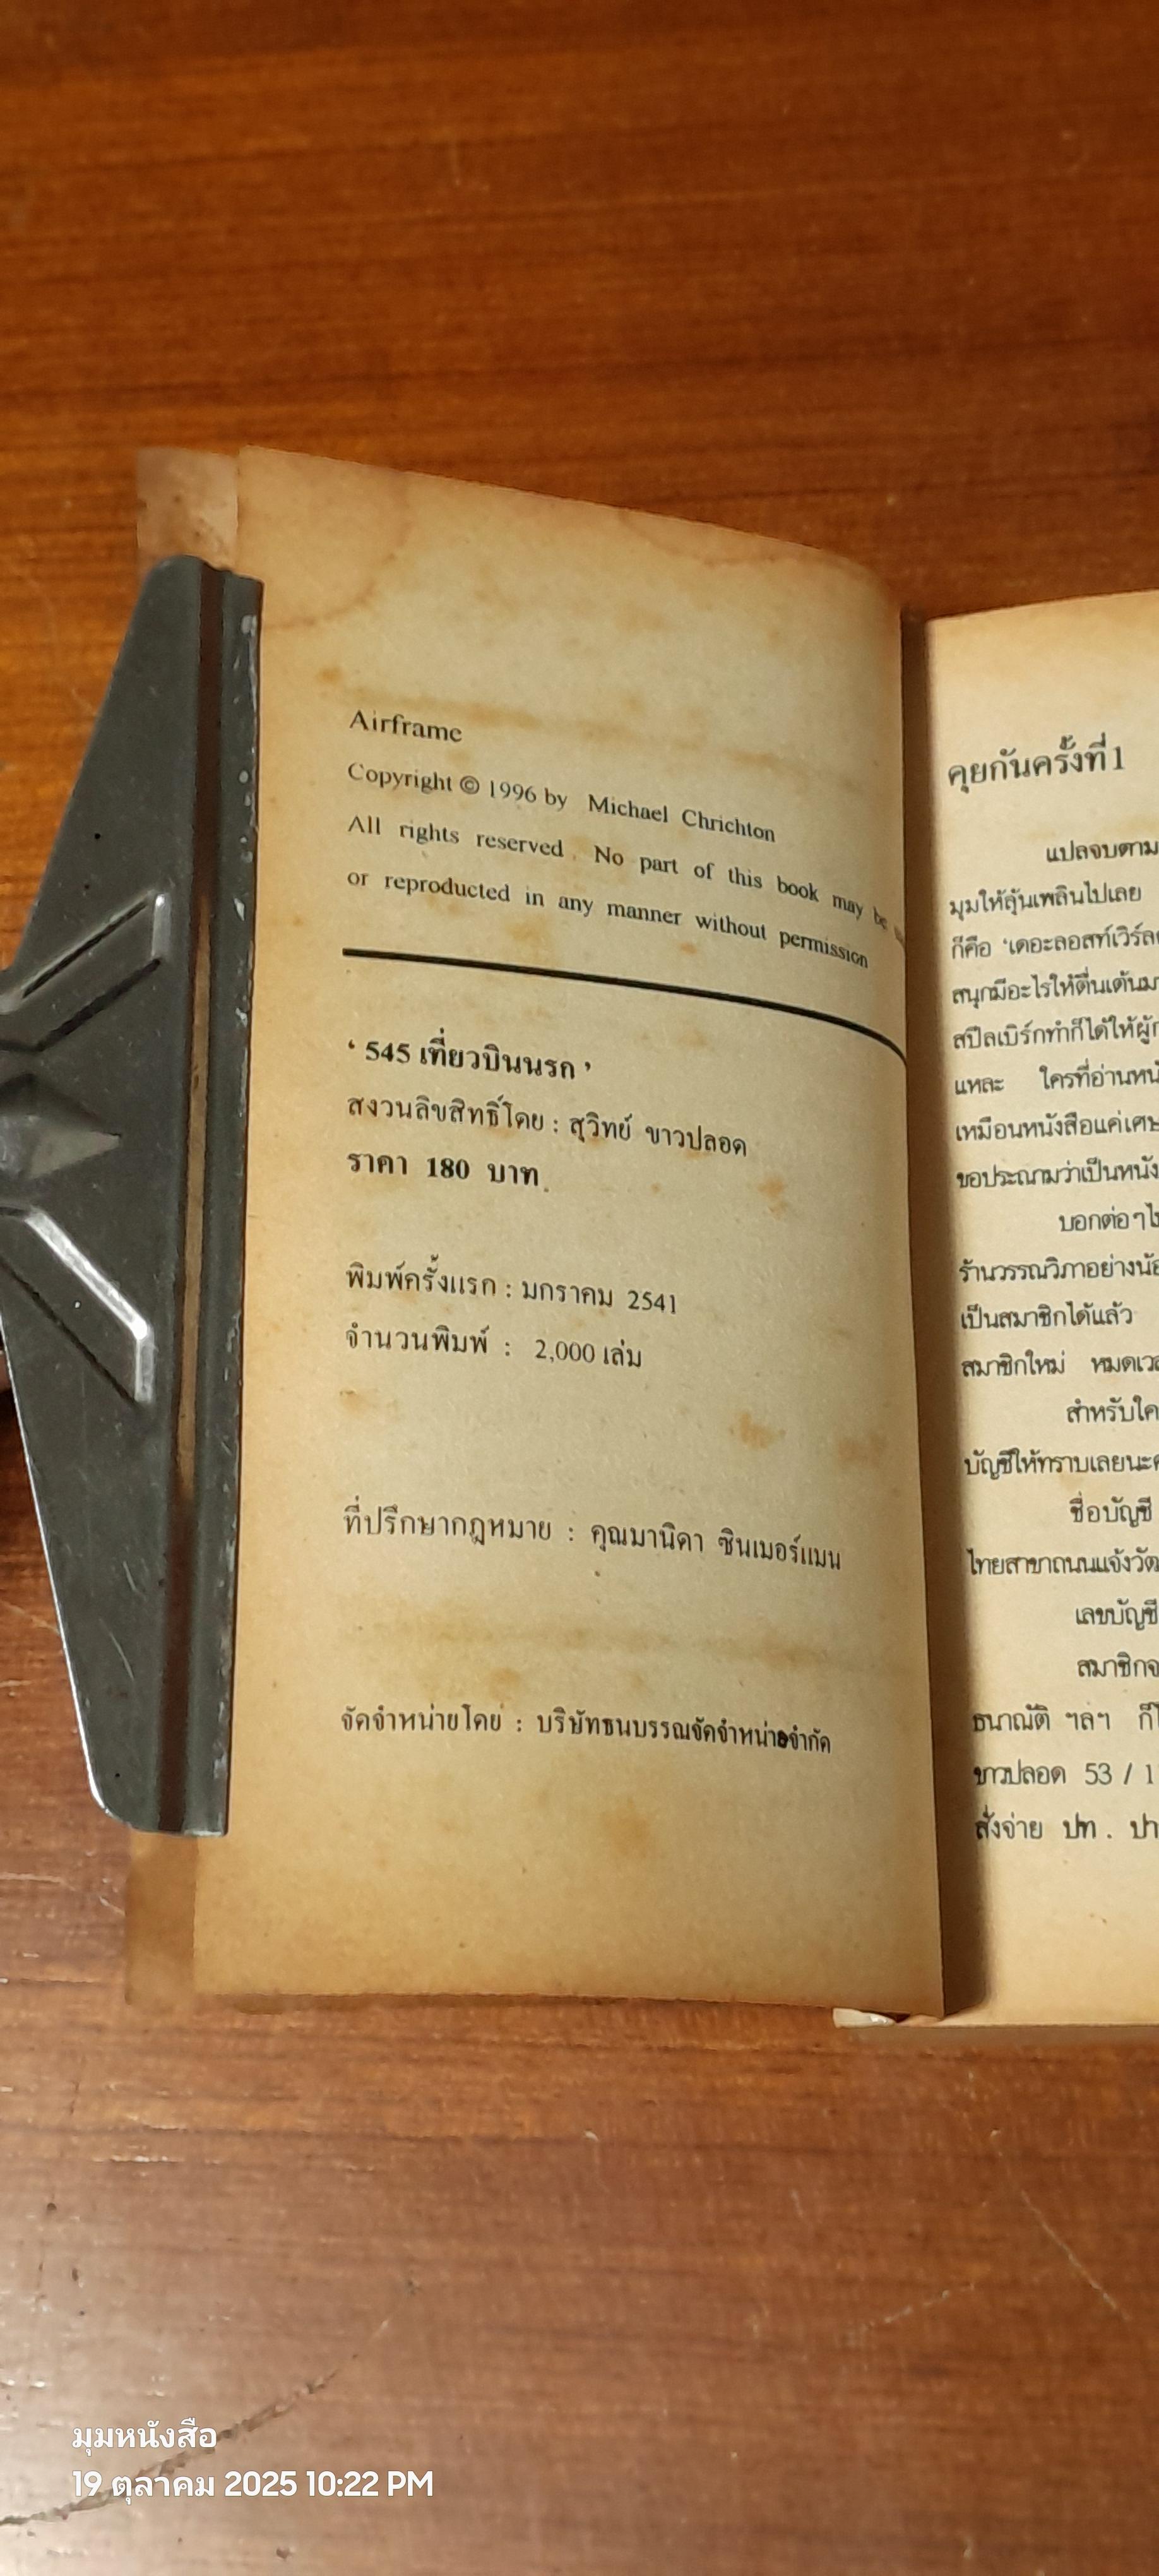 Airframe
Copyright © 1996 by Michael Chrichton
All rights reserved. No part of this book may be
or reproduced in any manner without permission
‘ 545 เที่ยวบินนรก ’
สงวนลิขสิทธิ์โดย : สุวิทย์ ขาวปลอด
ราคา 180 บาท
พิมพ์ครั้งแรก : มกราคม 2541
จำนวนพิมพ์ : 2,000 เล่ม
ที่ปรึกษากฎหมาย : คุณมานิดา ซินเมอร์แมน
จัดจำหน่ายโดย : บริษัทธนบรรณจัดจำหน่ายจำกัด
คุยกันครั้งที่ 1
แปลจบตาม
มุมให้ลุ้นเพลินไปเลย
ก็คือ ‘เดอะลอสท์เวิร์ล
สนุกมีอะไรให้ตื่นเต้น
สปีลเบิร์กทำก็ได้ให้
แหละ ใครที่อ่าน
เหมือนหนังสือแค่เศษ
ขอประณามว่าเป็นหนัง
บอกต่อๆ
ร้านวรรณวิภาอย่าง
เป็นสมาชิกได้แล้ว
สมาชิกใหม่ หมด
สำหรับ
บัญชีให้ทราบเลยนะ
ชื่อบัญชี
ไทยสาขาถนนแจ้งวัด
เลขบัญชี
สมาชิก
ธนาณัติ ฯลฯ
ขาวปลอด 53 / 1
สั่งจ่าย ปท .
มุมหนังสือ
19 ตุลาคม 2025 10:22 PM